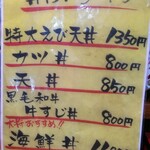 特大えび天丼 1350円
カツ丼 800円
天丼 850円
黒毛和牛
牛すじ丼 800円
大将おすすめ!!
海鮮丼